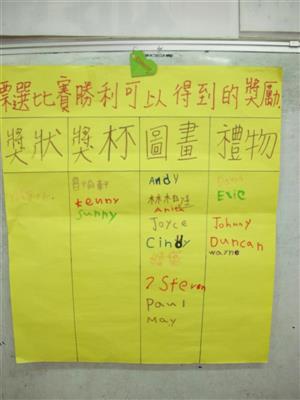 票選比賽勝利可以得到的獎勵
獎狀 獎杯 圖畫 禮物
Andy
Eric
kenny
sunny
Anita
Joyce
Johnny
Cindy
Duncan
wayne
? Steven
Paul
May